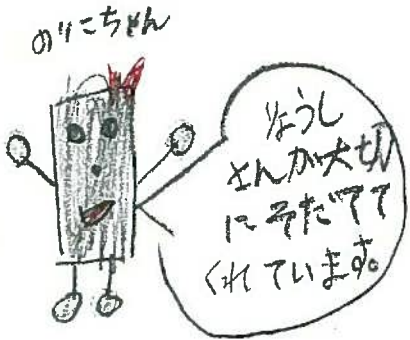 のりこちゃん
りょうし
さんが大切
にそだてて
くれています。